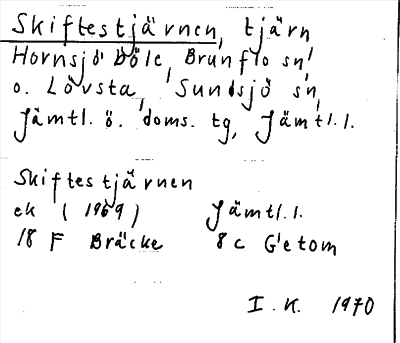 Skiftestjärnen, tjärn
Hornsjöböle, Brunflo sn,
o. Lövsta, Sundsjö sn,
Jämtl. ö. doms. tg, Jämtl.l.
Skiftestjärnen
ek (1969) Jämtl.l.
18 F Bräcke 8c Getom
I.K. 1970